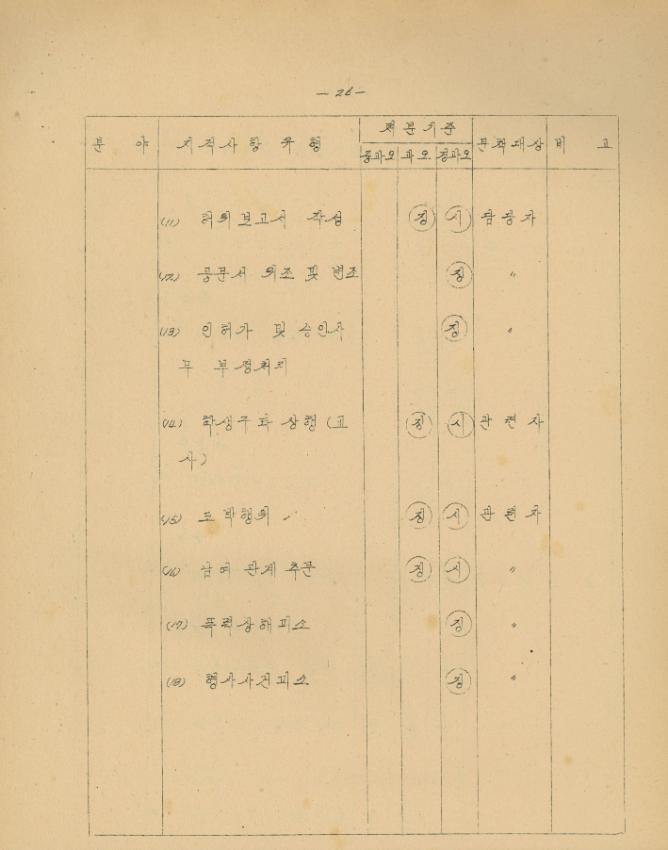 - 26 -
분 야 지적사항유형 처분기준 문책대상 비 고
중과오 과오 경과오
(11) 허위보고서 작성 징 시 담당자
(12) 공문서 위조 및 변조 징 〃
(13) 인허가 및 승인사 징 〃
무 부정처리
(14) 학생구타 상행 (교 징 시 관련자
사)
(15) 도박행위 징 시 관련자
(16) 남여관계추문 징 시 〃
(17) 폭력상해피소 징 〃
(18) 형사사건피소 징 〃